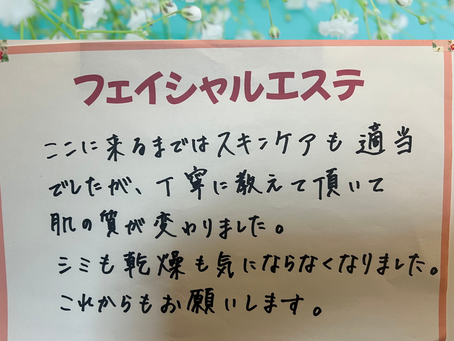 フェイシャルエステ
ここに来るまではスキンケアも適当
でしたが、丁寧に教えて頂いて
肌の質が変わりました。
シミも乾燥も気にならなくなりました。
これからもお願いします。